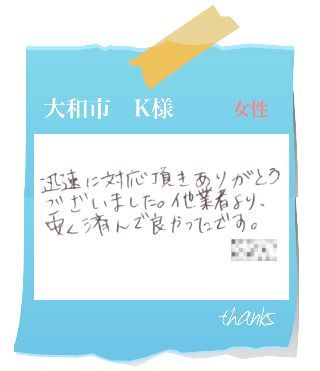 大和市　K様　女性
迅速に対応頂きありがとう
ございました。他業者より、
安く済んで良かったです。
thanks